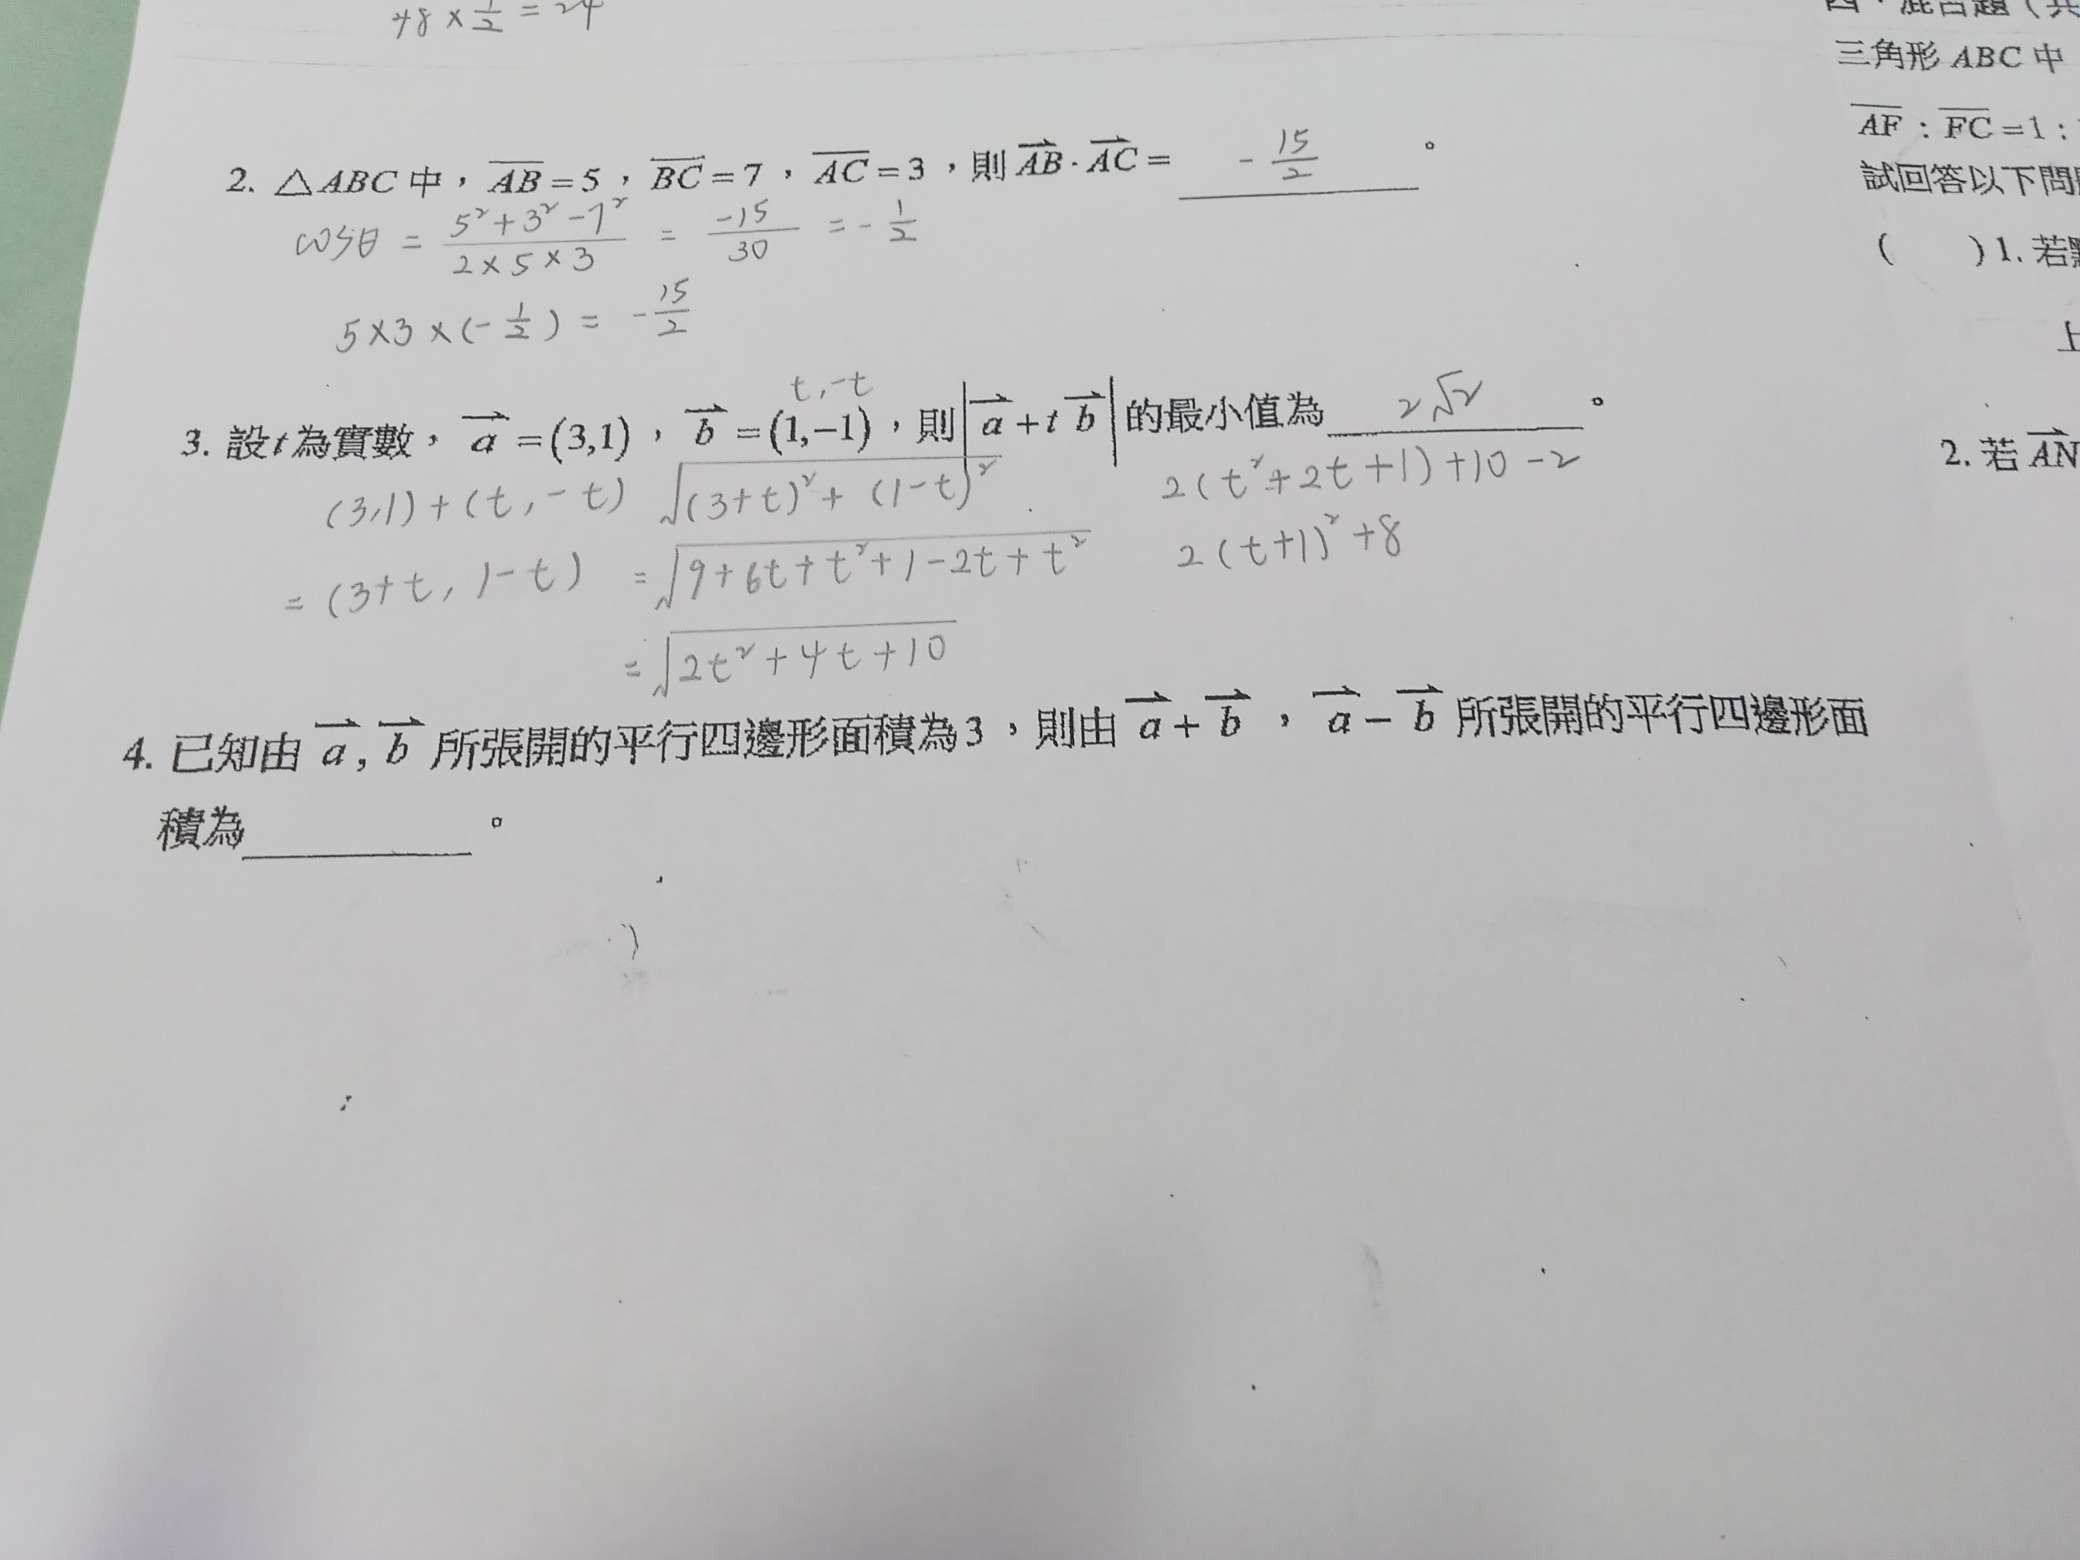 48 × 1/2 = 24
2. △ABC 中，AB = 5，BC = 7，AC = 3，則 AB · AC = - 15/2 。
cosθ = (5² + 3² - 7²)/(2 × 5 × 3) = -15/30 = - 1/2
5 × 3 × (- 1/2) = - 15/2
t, -t
3. 設 t 為實數， a = (3,1)， b = (1,-1)，則 | a + t b | 的最小值為 2√2 。
(3,1) + (t, -t) √(3+t)² + (1-t)² 2(t² + 2t + 1) + 10 - 2
= (3+t, 1-t) = √9 + 6t + t² + 1 - 2t + t² 2(t+1)² + 8
= √2t² + 4t + 10
4. 已知由 a , b 所張開的平行四邊形面積為 3，則由 a + b ， a - b 所張開的平行四邊形面
積為 。
四、混合題（共
三角形 ABC 中
AF : FC = 1 :
試回答以下問
( ) 1. 若
上
2. 若 AN